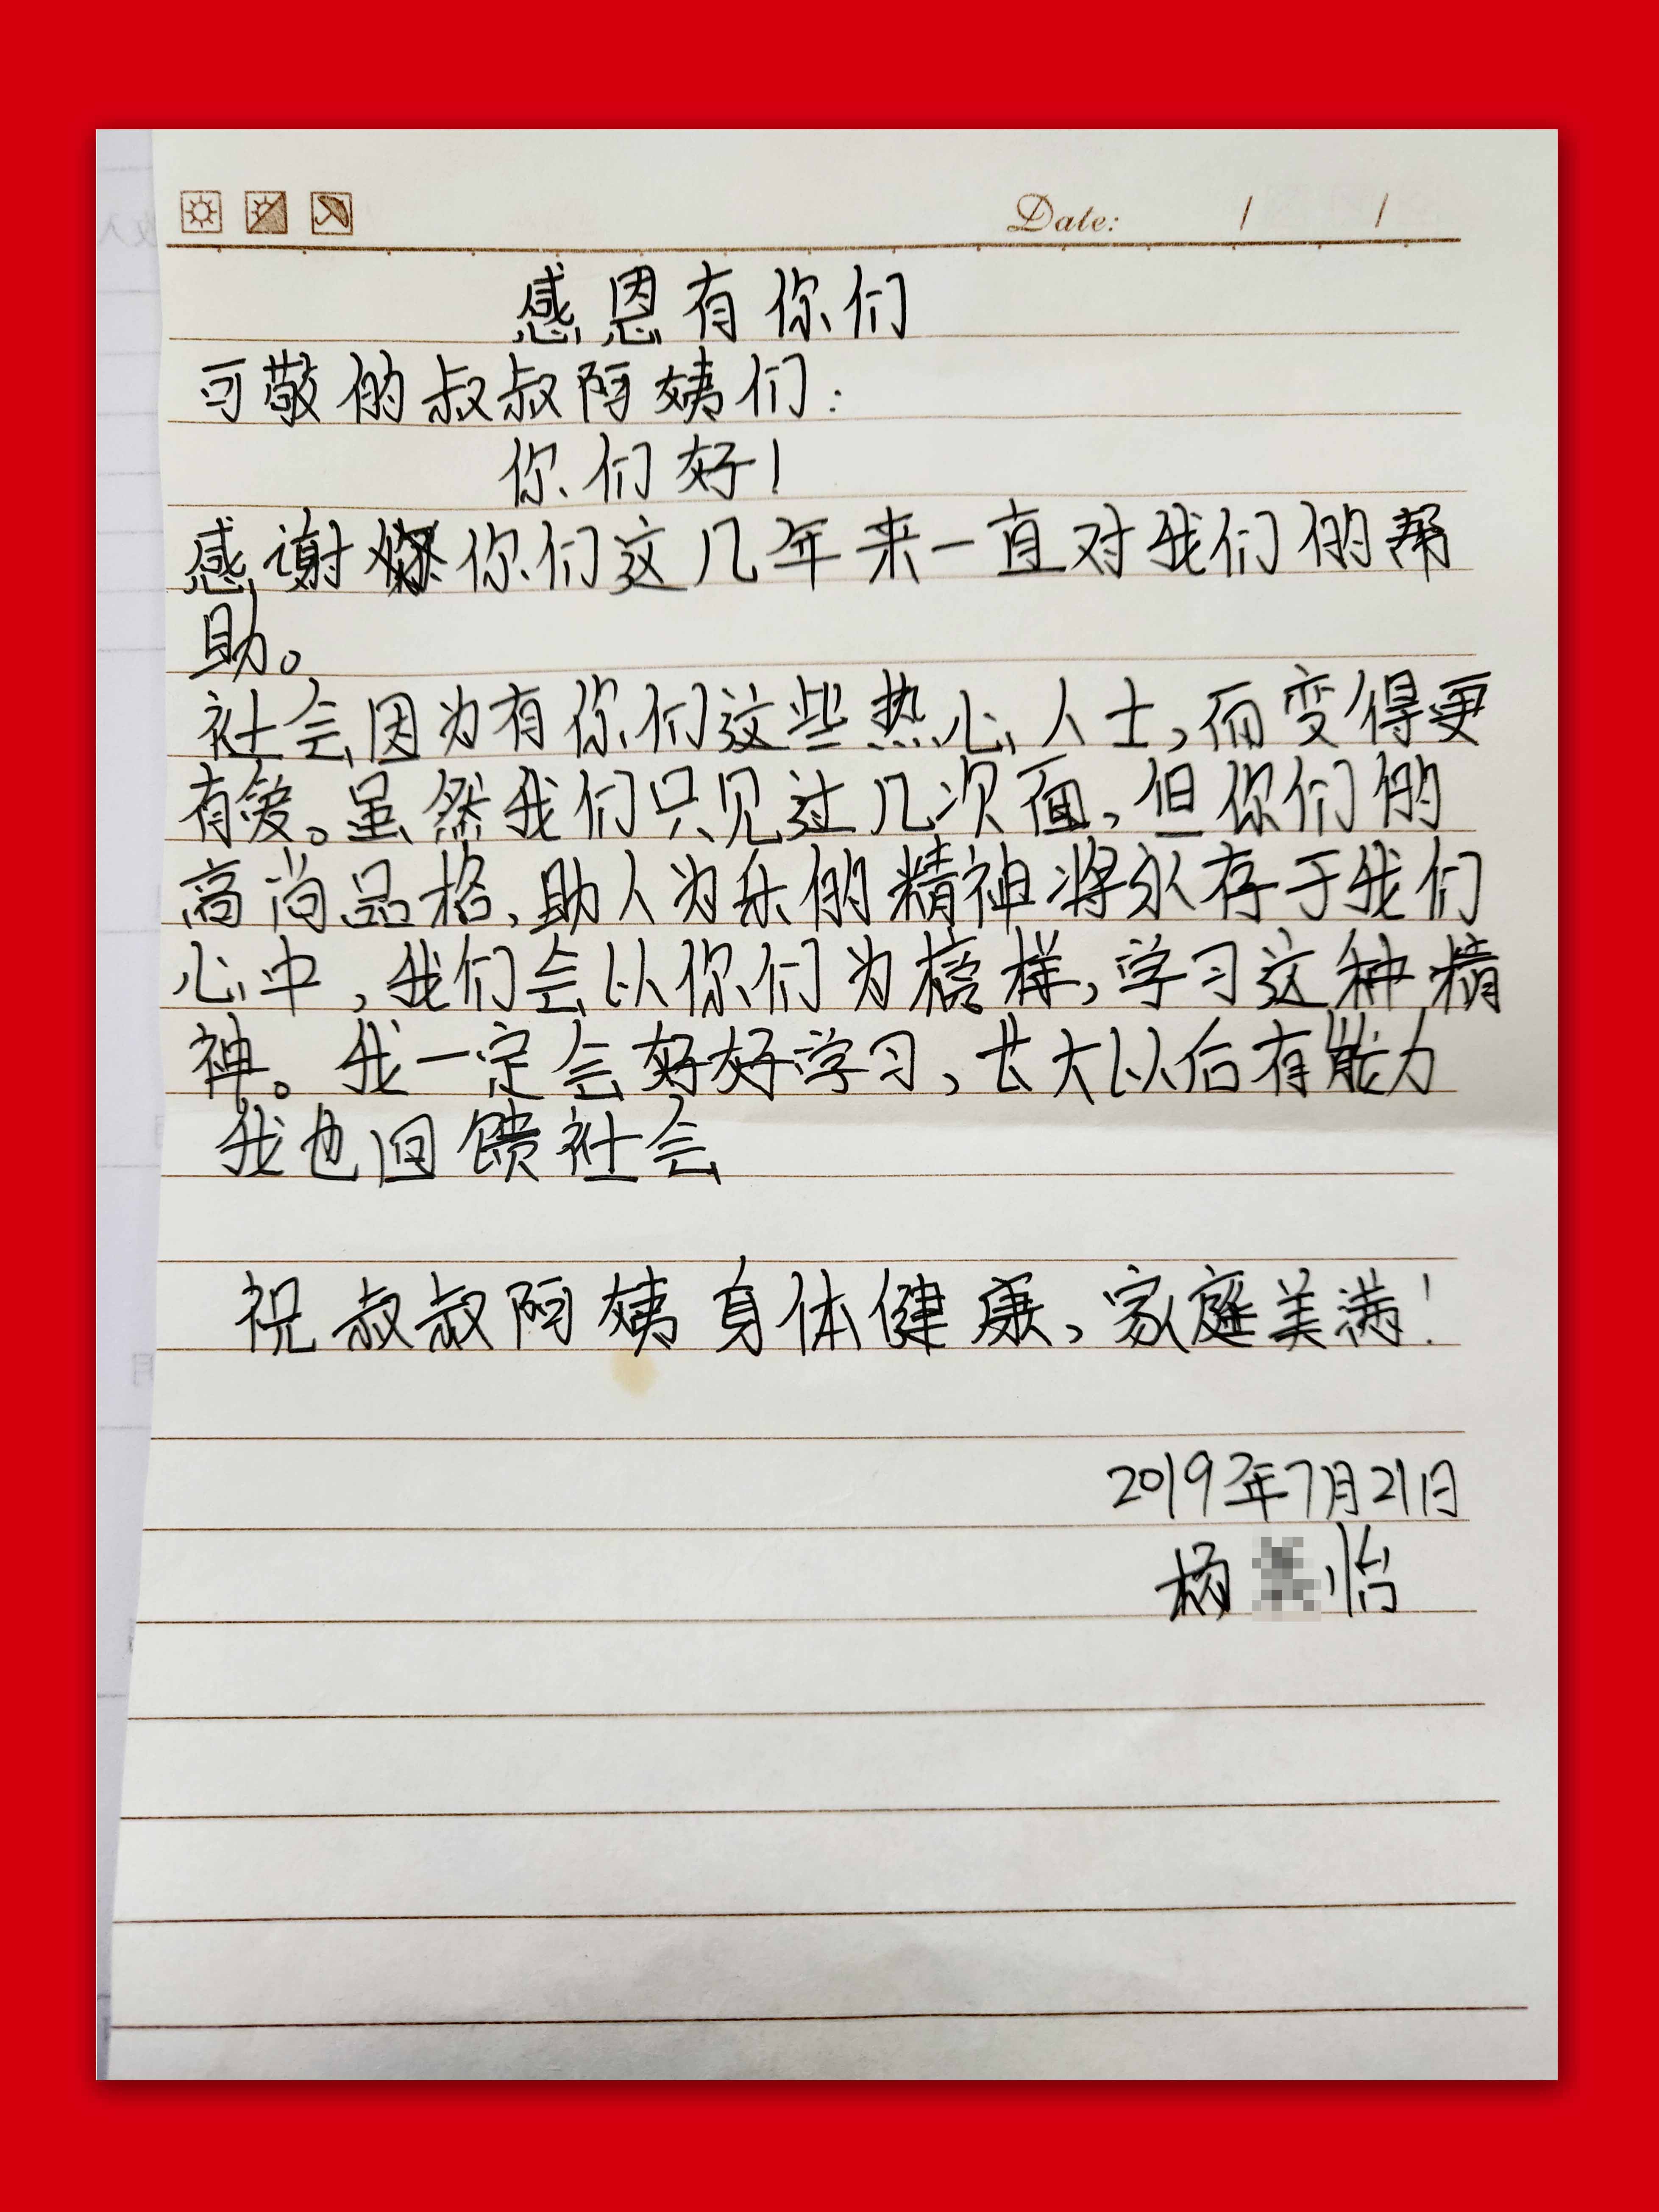 Date: / /
感恩有你们
可敬的叔叔阿姨们：
你们好！
感谢你们这几年来一直对我们的帮
助。
社会因为有你们这些热心人士，而变得更
有爱。虽然我们只见过几次面，但你们的
高尚品格、助人为乐的精神将永存于我们
心中，我们会以你们为榜样，学习这种精
神。我一定会好好学习，长大以后有能力
我也回馈社会
祝叔叔阿姨身体健康、家庭美满！
2019年7月21日
杨 怡